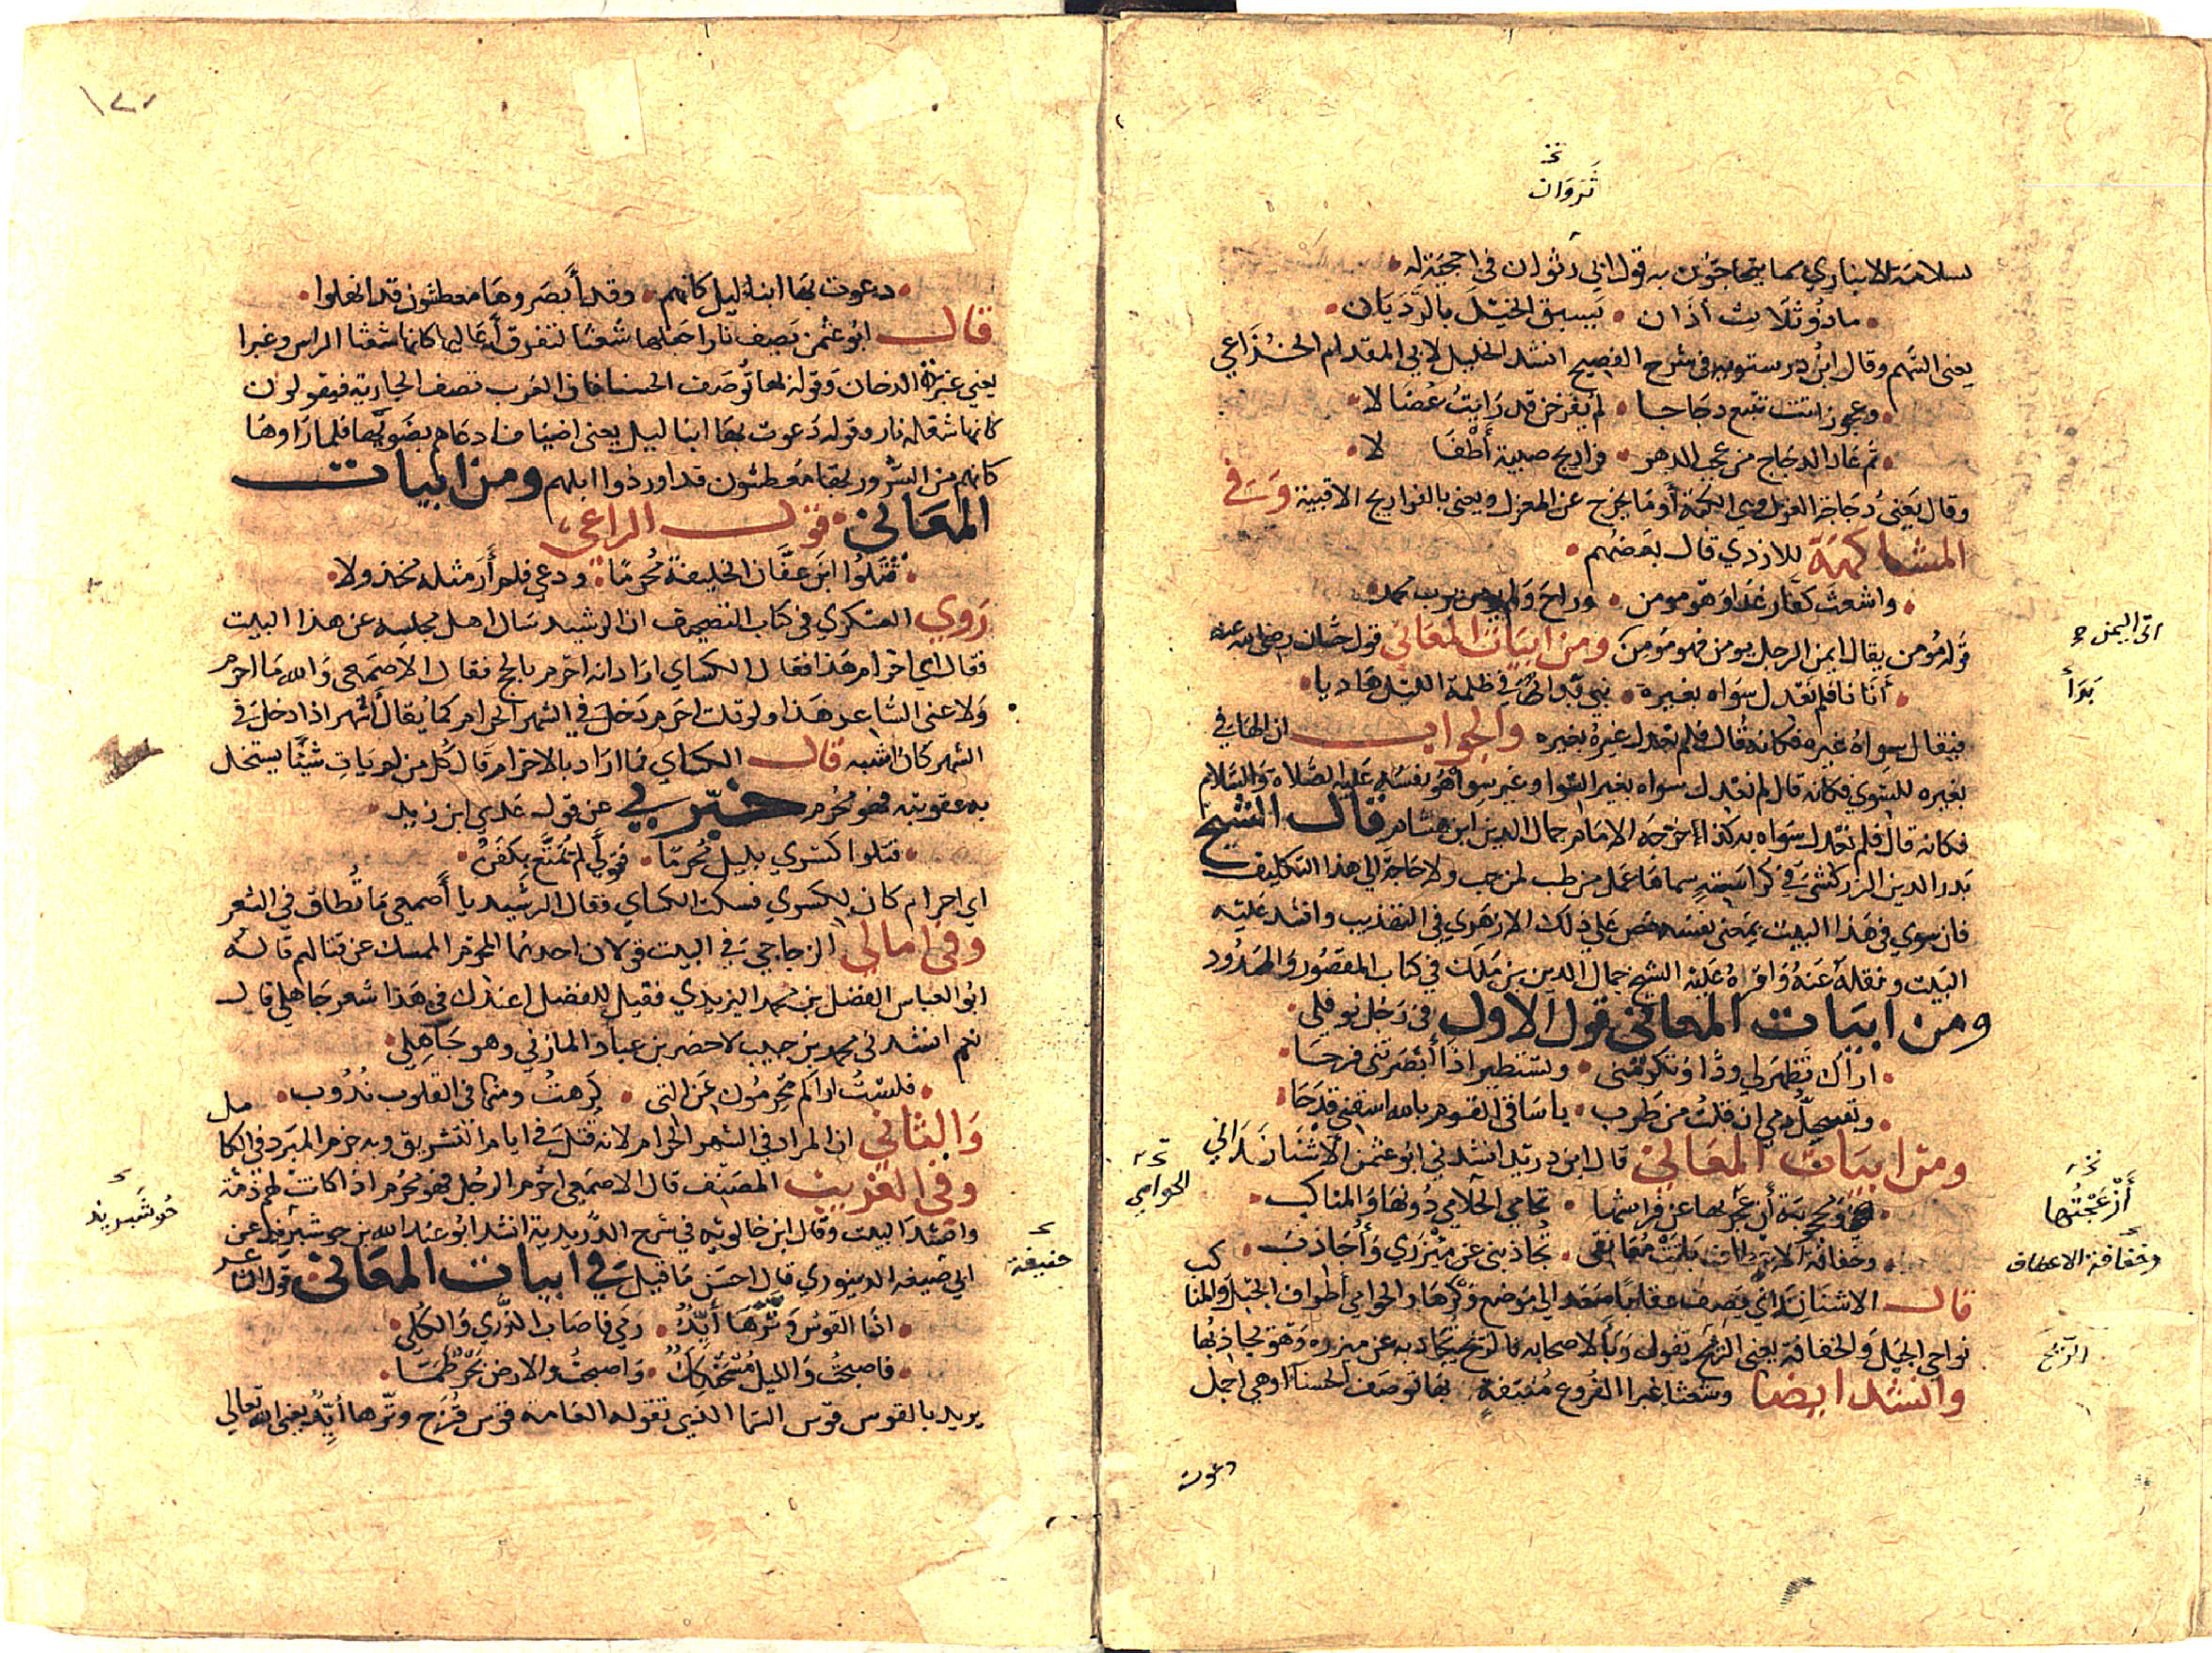 ثَرَوَان
لسلامة الانباري مما يتحاجون به قول ابي رثوان في احجية له
ما ذو ثلاث آذان • يسبق الخيل بالرديان
يعني السهم وقال ابن درستويه في شرح الفصيح انشد الخليل لابي المقدام الخزاعي
وعجوز اتت تبيع دجاجا • لم يفرخن قد رايت عضالا
ثم عاد الدجاج من عجب الدهر • فراريج صبية أطفالا
وقال يعني دجاجة الغزل وهي الكبة أو ما يخرج عن المغزل ويعني بالفراريج الاقبية وفي
المشاكهة للازدي قال بعضهم
واشعث كفار غدا وهو مومن • وراح ولم يومن برب محمد
قوله مؤمن يقال ايمن الرجل يومن فهو مومن ومن ابيات المعاني قول حسان رضي الله عنه
اتى اليمن
أتانا فلم نعدل سواه بغيره • نبي بدا في ظلمة الليل هاديا
بَدَأ
فيقال سواه غيره فكانه قال فلم نعدل غيره بغيره والجواب ان الهاء في
بغيره للسوي فكانه قال لم نعدل سواه بغير السوا وغير سواه هو نفسه عليه الصلاة والسلام
فكانه قال فلم نعدل سواه به كذا خرجه الامام جمال الدين ابن هشام قال الشيخ
بدر الدين الزركشي في كراسته سماها عمل من طب لمن حب ولا حاجة الى هذا التكليف
فان سوي في هذا البيت بمعنى نفسه نص على ذلك الازهري في التهذيب وانشد عليه
البيت ونقله عنه واقراه عليه الشيخ جمال الدين بن ملك في كتاب المقصور والممدود
ومن ابيات المعاني قول الاول في رجل نوفلي
اراك تظهر لي ودا وتكرمني • وتستطير اذا أبصرتني فرحا
وتستحل دمي ان قلت من طرب • يا ساقي القوم بالله اسقني قدحا
ومن ابيات المعاني قال ابن دريد انشدني ابو عثمن الاشنانداني
أن عجر بها عن فراشها • تحامي الحلامي دونها والمناكب
أزعجتُها
الحوامي
وخفاقة باتت معانقي • تجاذبني عن ميزري وأجاذب
وخفاقة الاعطاف
قال الاشنانداني يصف عقابا صعد الى موضع وكرها والحوامي أطراف الجبل والمناكب
نواحي الجبل والخفاقة يعني الريح يقول وبا لاصحابه فالريح تجاذبه عن ميزره وهو يجاذبها
الريح
وانشد ايضا وشعثا غبرا الفروع منيفة • بها توصف الحسنا أو هي اجمل
دعوت
دعوت بها ابناء ليل كانهم • وقد أبصروها معطشون قد انهلوا
قال ابو عثمن يصف نارا جعلها شعثا لتفرق أعاليها كانها شعثا الراس وغبرا
يعني غبرة الدخان وقوله بها توصف الحسنا فان العرب تصف الجارية فيقولون
كانها شعلة نار وقوله دعوت بها ابنا ليل يعني اضيافا دعاهم بضويها فلما راوها
كانهم من السرور بها معطشون قد اوردوا ابلهم ومن ابيات
المعاني • قول الراعي
قتلوا ابن عفان الخليفة محرما • ودعي فلم أر مثله مخذولا
روي العسكري في كتاب التصحيف ان الرشيد سال اهل مجلسه عن هذا البيت
فقال اي احرام هذا فقال الكساي اراد انه احرم بالحج فقال الاصمعي والله ما احرم
ولا عنى الشاعر هذا ولو قلت احرم دخل في الشهر الحرام كما يقال أشهر اذا دخل في
الشهر كان اشبه قال الكساي فما اراد بالاحرام قال كل من لم يات شيئا يستحل
به عقوبته فهو محرم خبرني عن قول عدي ابن زيد
قتلوا كسري بليل محرما • فتولى لم يمتع بكفن
اي احرام كان لكسري فسكت الكساي فقال الرشيد يا أصمعي ما تُطاق في الشعر
وفي امالي الزجاجي في البيت قولان احدهما المحرم الممسك عن قتالهم قاله
ابو العباس الفضل بن محمد اليزيدي فقيل للفضل اعندك في هذا شعر جاهلي قال
نعم انشدني محمد بن حبيب لاخضر بن عباد المازني وهو جاهلي
فلست اراكم تحرمون عن التي • كرهت ومنها في القلوب ندوب
والثاني ان المراد في الشهر الحرام لانه قتل في ايام التشريق وبه جزم المبرد في الكامل
وفي الغريب المصنف قال الاصمعي احرم الرجل فهو محرم اذا كانت له ذمة
وانشد البيت وقال ابن خالويه في شرح الدريدية انشد ابو عبد الله بن خوشيريد عن
خوشَيريذ
ابي ضيفه الدينوري قال احسن ما قيل في ابيات المعاني قول الشاعر
حنيفة
اذا القوس وترها أيد • رمي فاصاب الذري والكلي
فاصبحت والليل مستحلك • واصبحت والارض بحر طما
يريد بالقوس قوس السما الذي تقوله العامه قوس قزح وترها أيد يعني الله تعالى